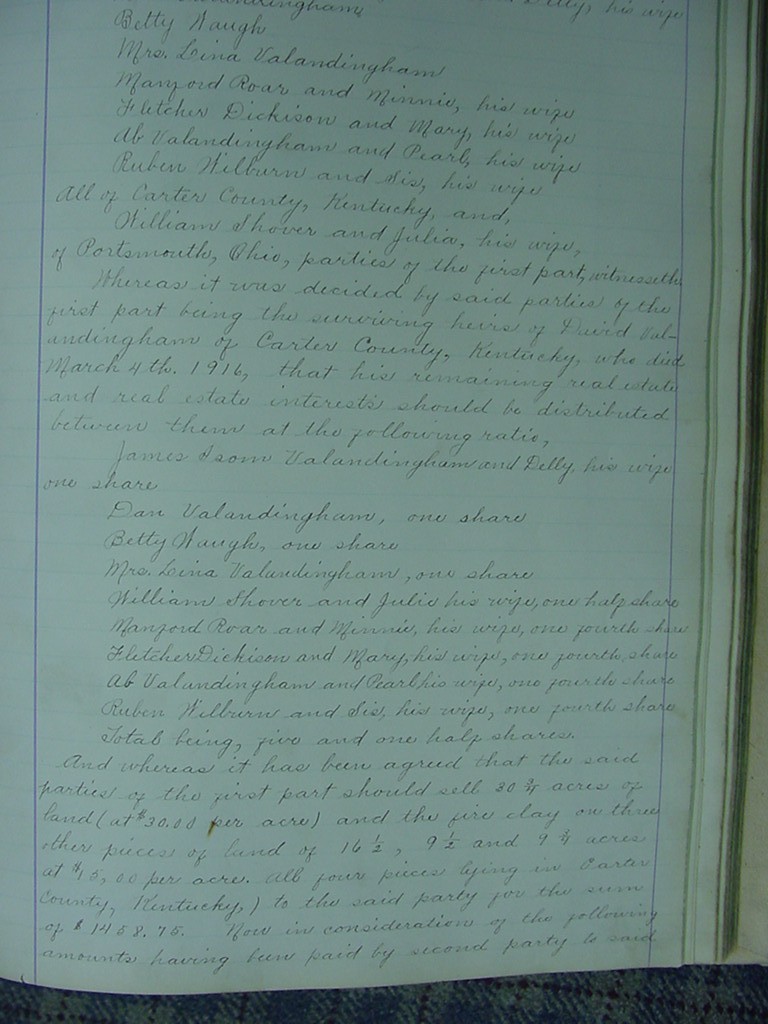 Valandingham, Delly, his wife
Betty Waugh
Mrs. Lina Valandingham
Manford Roar and Minnie, his wife
Fletcher Dickison and Mary, his wife
Ab Valandingham and Pearl, his wife
Ruben Wilburn and Sis, his wife
All of Carter County, Kentucky, and,
William Shover and Julia, his wife,
of Portsmouth, Ohio, parties of the first part, witnesseth
Whereas it was decided by said parties of the
first part being the surviving heirs of David Val-
andingham of Carter County, Kentucky, who died
March 4th. 1916, that his remaining real estate
and real estate interests should be distributed
between them at the following ratio,
James Isom Valandingham and Delly, his wife
one share
Dan Valandingham, one share
Betty Waugh, one share
Mrs. Lina Valandingham, one share
William Shover and Julie his wife, one half share
Manford Roar and Minnie, his wife, one fourth share
Fletcher Dickison and Mary, his wife, one fourth share
Ab Valandingham and Pearl his wife, one fourth share
Ruben Wilburn and Sis, his wife, one fourth share
Total being, five and one half shares.
And whereas it has been agreed that the said
parties of the first part should sell 30 3/4 acres of
land (at $30.00 per acre) and the fire clay on three
other pieces of land of 16 1/2, 9 1/2 and 9 3/4 acres
at $15,00 per acre. All four pieces lying in Carter
County, Kentucky,) to the said party for the sum
of $1458.75. Now in consideration of the following
amounts having been paid by second party to said